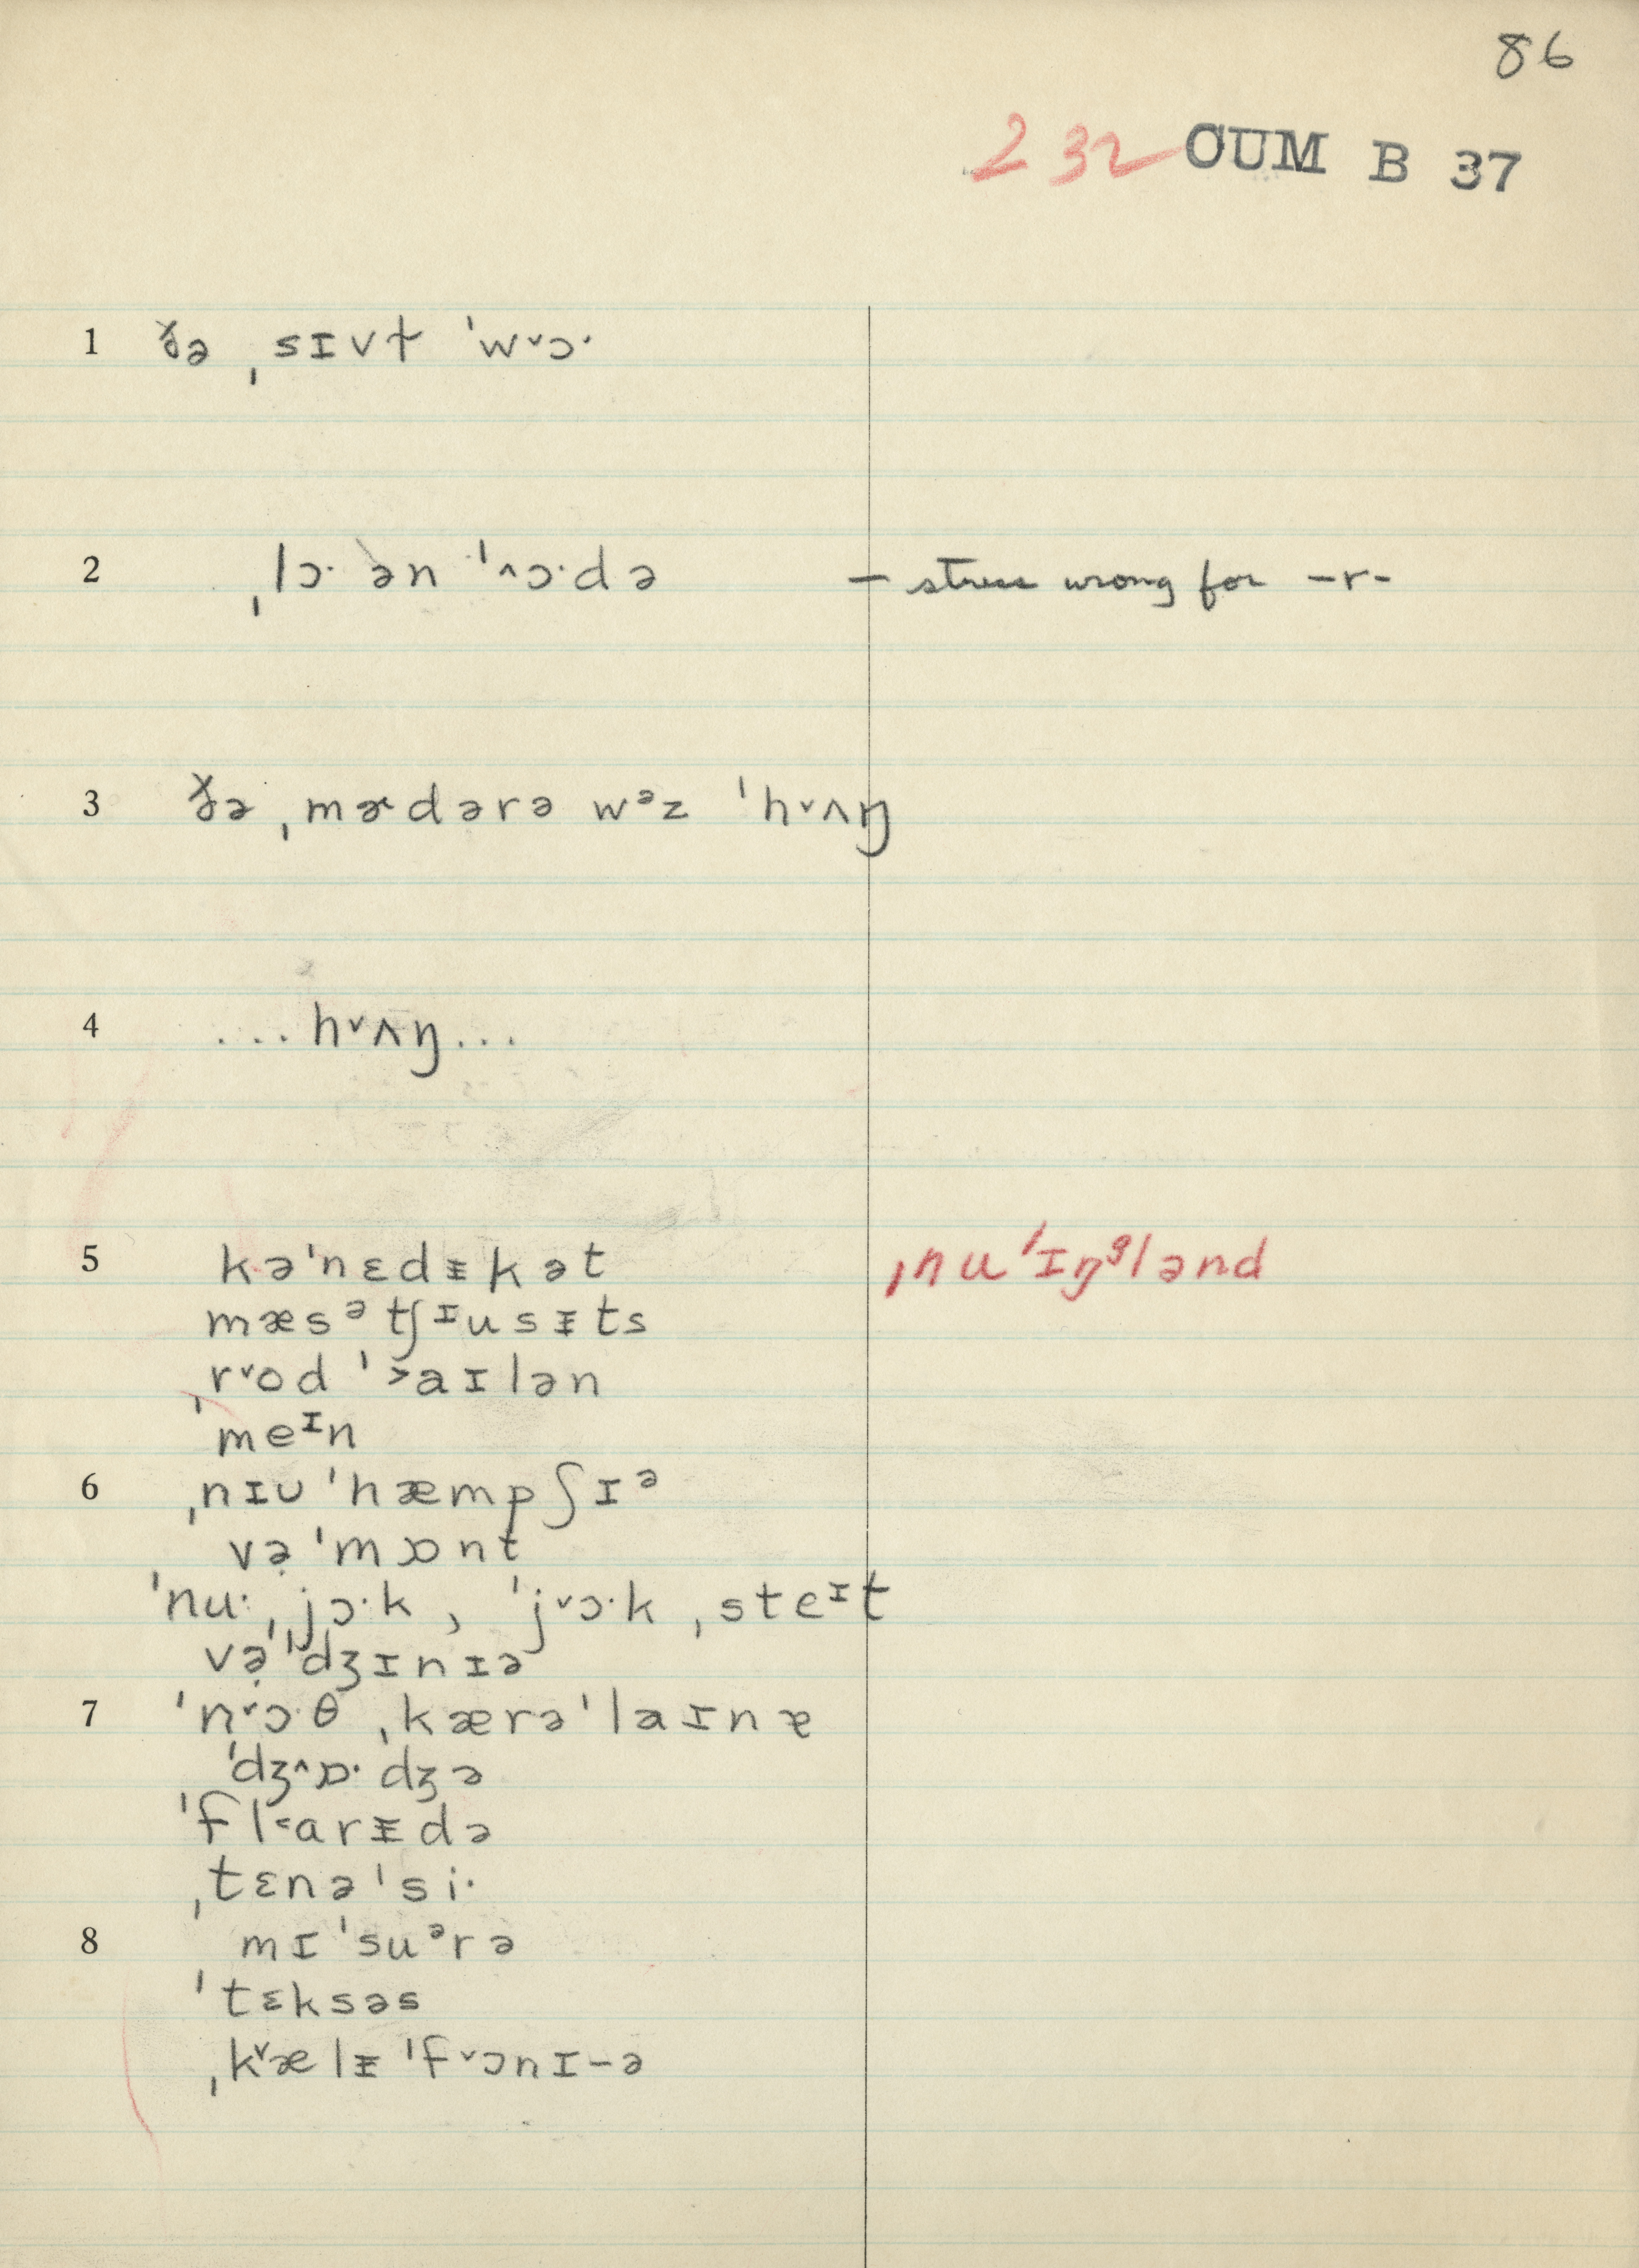 86
232 OUM B 37
1 ðə ˌsɪvt ˈw˅ɔ·
2 ˌlɔ· ən ˈ˄ɔ·də — stress wrong for –r–
3 ðə ˌmædərə wᵊz ˈh˅ʌŋ
4 ...h˅ʌŋ...
5 kəˈnɛdᵻkət ˌnuˈɪŋᵍlənd
mæsᵊtʃᶦusᵻts
ˌr˅odˈ˃aɪlən
ˈmeᶦn
6 ˌnɪʊˈhæmpʃɪᵊ
və̣ˈmɒnt
ˈnu·ˌjɔ·k, ˈj˅ɔ·kˌsteᶦt
və̣ˈdʒɪnɪə
7 ˈn˅ɔ·θˌkærəˈlaɪnɐ
ˈdʒ˄ɒ·dʒə
ˈfl˂arᵻdə
ˌtɛnəˈsi·
8 mɪˈsuᵊrə
ˈtɛksəs
ˌk˅ælᵻˈf˅ɔnɪ-ə